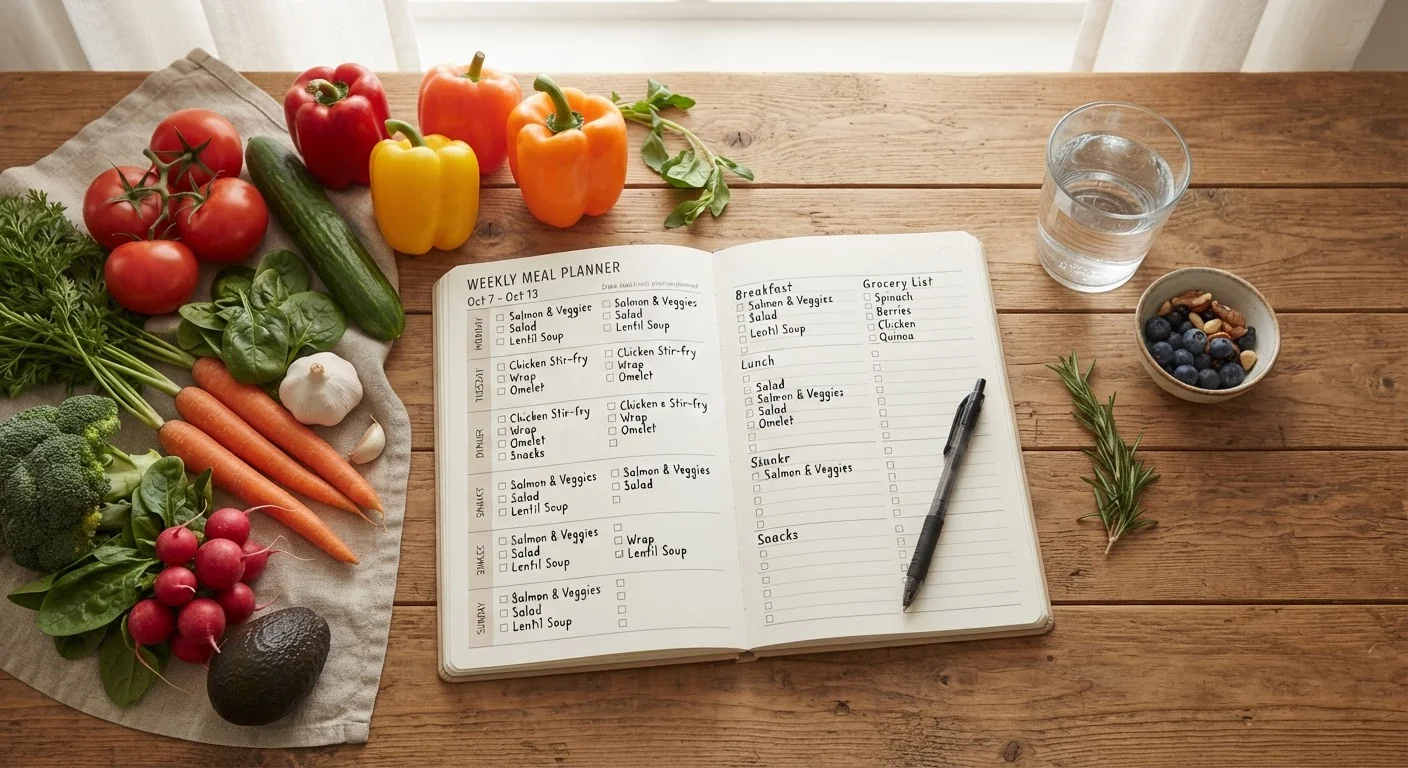 WEEKLY MEAL PLANNER
Oct 7 - Oct 13
Salmon & Veggies
Salad
Lentil Soup
Salmon & Veggies
Salad
Lentil Soup
Chicken Stir-fry
Wrap
Omelet
Chicken Stir-fry
Wrap
Omelet
DINNER
Chicken Stir-fry
Wrap
Omelet
Snacks
Chicken & Stir-fry
Wrap
Omelet
Salmon & Veggies
Salad
Lentil Soup
Salmon & Veggies
Salad
Salmon & Veggies
Salad
Lentil Soup
Wrap
Lentil Soup
SUNDAY
Salmon & Veggies
Salad
Lentil Soup
Breakfast
Salmen & Veggies
Salad
Leotil Soup
Lunch
Salad
Salmon & Veggies
Salad
Omelet
Salmon & Veggies
Snacks
Grocery List
Spinach
Berries
Chicken
Quinoa